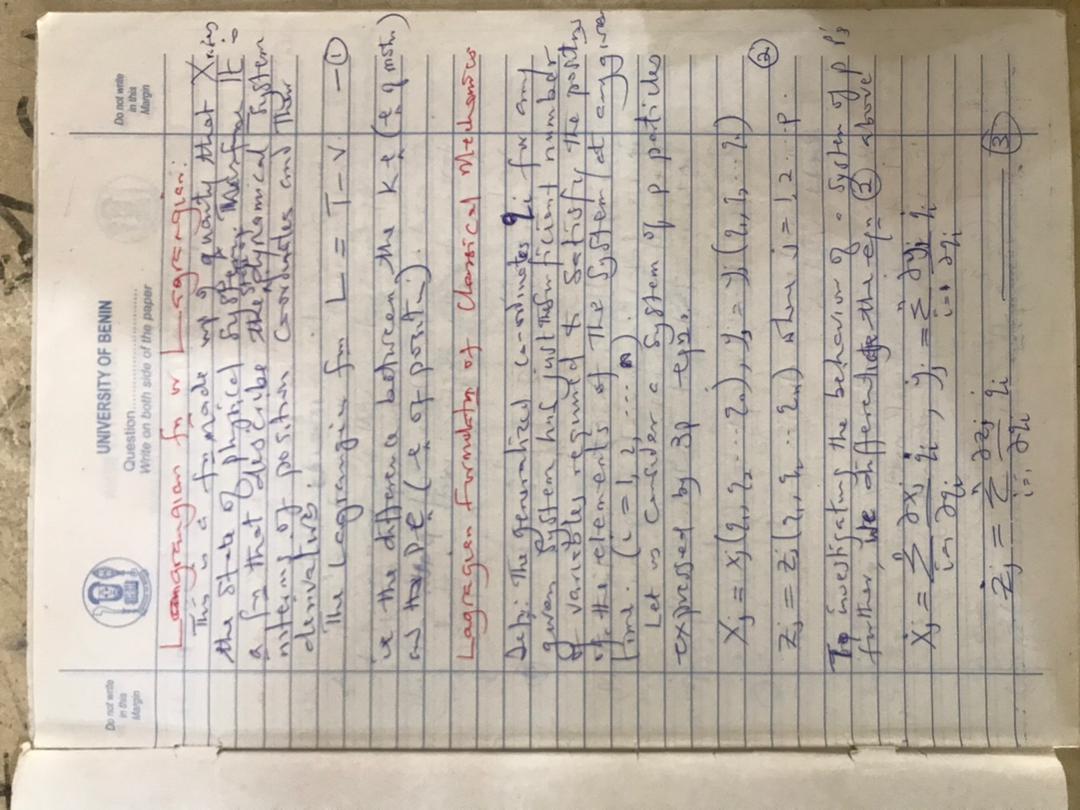 Do not write
in this
Margin
UNIVERSITY OF BENIN
Question..............................
Write on both side of the paper
Do not write
in this
Margin
Langrangian fn or Lagrangian:
This is a fn made up of quantity that
the State of physical System. It is
a fn that describe the State of dynamical System
interms of position Coordinates and their
derivatives.
The Lagrangian fn L = T - V. — ①
ie the difference between the K e (e of motn)
and the P e (e of positn).
Lagragian Formulatn of Classical Mechanics
Defn: The generalized co-ordinates qi for any
given System has just the sufficient number
of variables required to Satisfy the positns
of the elements of the System at any given
time. (i = 1, 2, ... n).
Let us Consider a System of p particles
expressed by 3p eqns.
Xj = xj(q1, q2 ... qn), yj = yj(q1, q2 ... qn)
②
Zj = zj(q1, q2 ... qn) where j = 1, 2 ... p.
To investigating the behavior of a System of p P's
further, we differentiate the eqn ② above
ẋj = n∑i=1 ∂xj/∂qi q̇i , ẏj = n∑i=1 ∂yj/∂qi q̇i
żj = n∑i=1 ∂zj/∂qi q̇i — ③